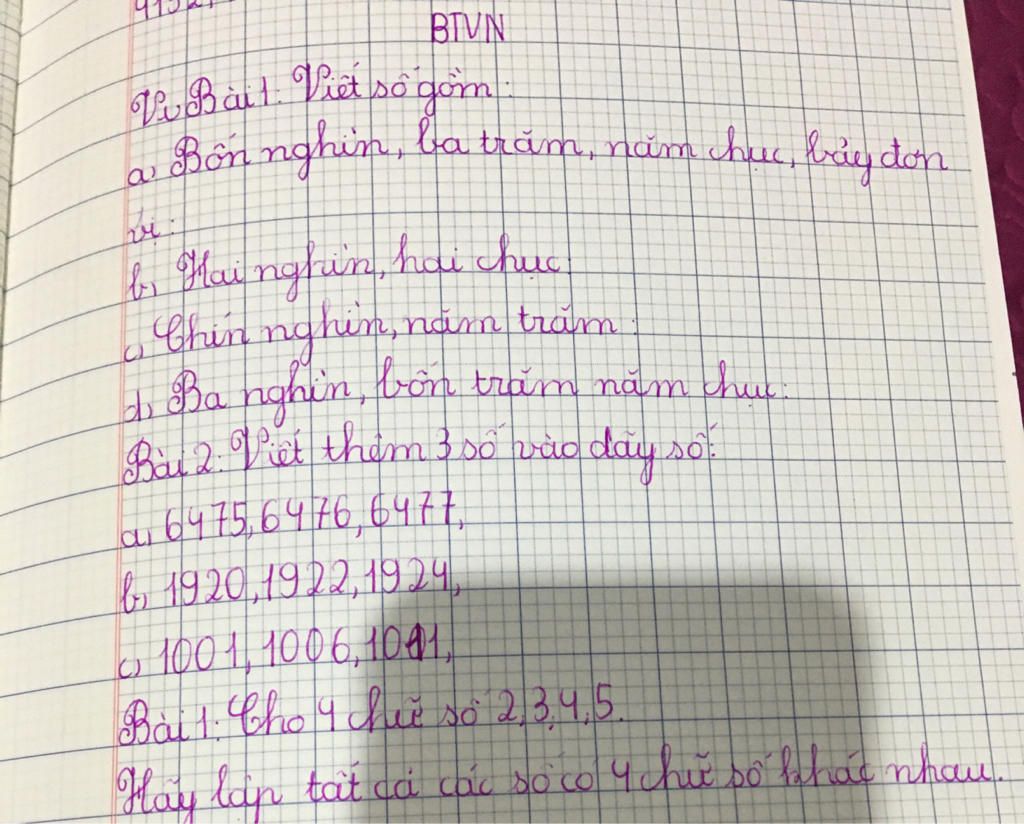 BTVN
Bài 1: Viết số gồm:
a, Bốn nghìn, ba trăm, năm chục, bảy đơn
vị:
b, Hai nghìn, hai chục
c, Chín nghìn, năm trăm:
d, Ba nghìn, bốn trăm năm chục:
Bài 2: Viết thêm 3 số vào dãy số:
a, 6475, 6476, 6477,
b, 1920, 1922, 1924,
c, 1001, 1006, 1011,
Bài 1: Cho 4 chữ số 2,3,4,5.
Hãy lập tất cả các số có 4 chữ số khác nhau.